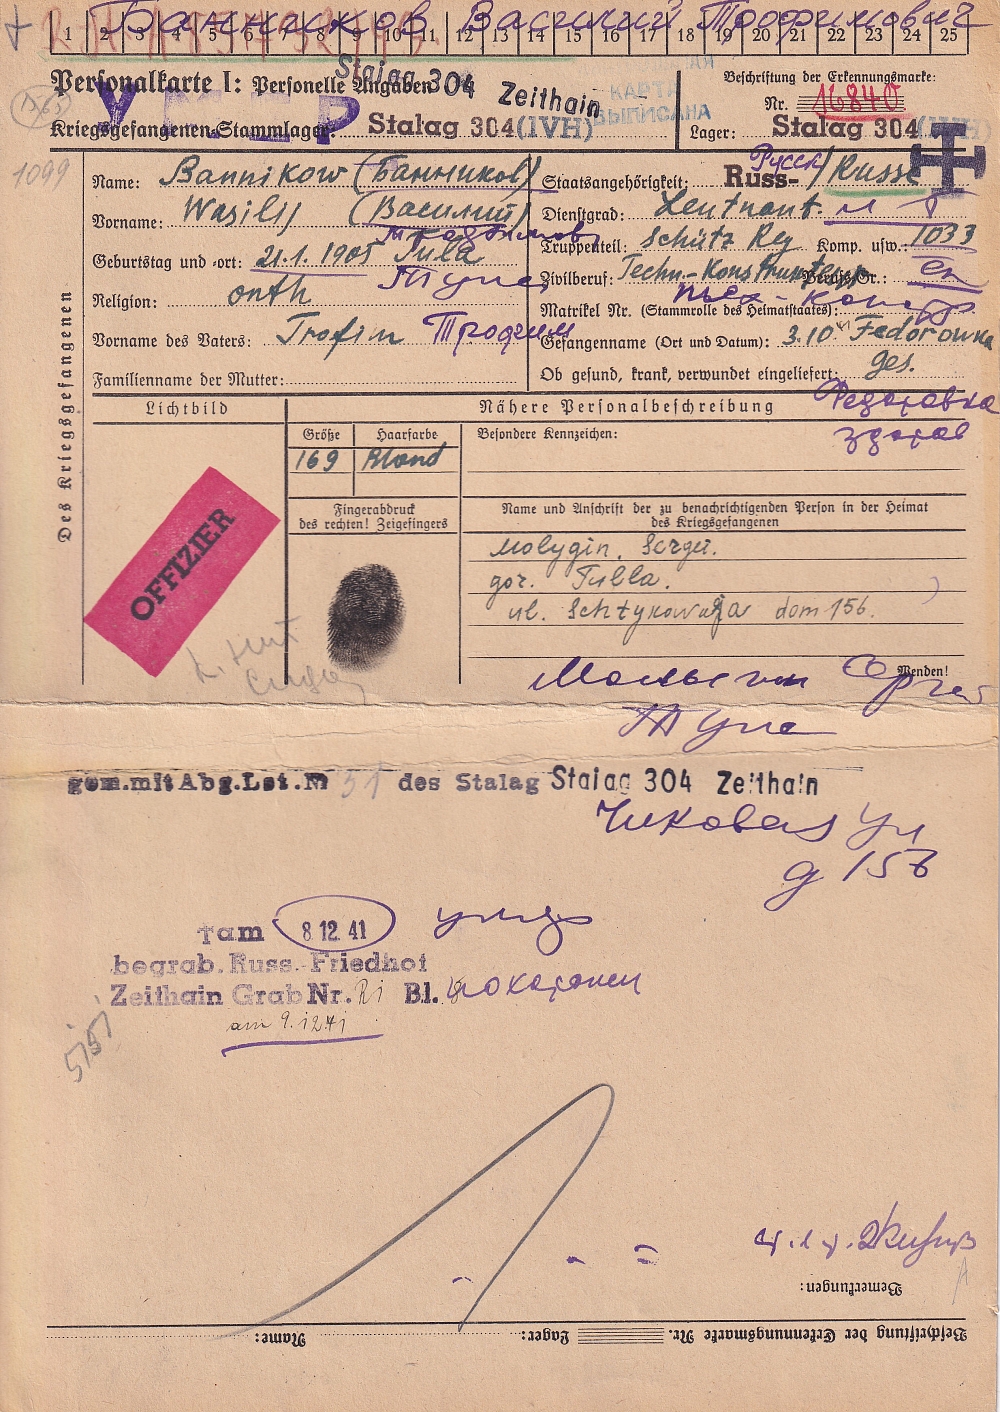 Банников Василий Трофимович
1 2 3 4 5 6 7 8 9 10 11 12 13 14 15 16 17 18 19 20 21 22 23 24 25
Personalkarte I: Personelle Angaben
Stalag 304 Zeithain
КАРТА
ВЫПИСАНА
Beschriftung der Erkennungsmarke:
Nr. 16840
Kriegsgefangenen-Stammlager: Stalag 304 (IVH)
Lager: Stalag 304 (IVH)
УМЕР
1099
Des Kriegsgefangenen
Name: Bannikow (Банников)
Vorname: Wasilij (Василий)
Geburtstag und -ort: 21.1.1905 Tula
Тула
Religion: orth
Vorname des Vaters: Trofim Трофим
Familienname der Mutter:
Staatsangehörigkeit: Russ- / Russe
Русск
Dienstgrad: Leutnant
Truppenteil: Schütz Reg Komp. usw.: 1033
Zivilberuf: Techn.-Konstrukteur Berufs-Gr.:
Matrikel Nr. (Stammrolle des Heimatstaates):
Gefangenname (Ort und Datum): 3.10 Fedorowka
Ob gesund, krank, verwundet eingeliefert: ges.
Федоровка
здоров
Lichtbild
OFFIZIER
Nähere Personalbeschreibung
Größe Haarfarbe Besondere Kennzeichen:
169 Blond
Fingerabdruck
des rechten! Zeigefingers
Name und Anschrift der zu benachrichtigenden Person in der Heimat
des Kriegsgefangenen
Molygin, Sergei.
gor. Tulla.
ul. Schtykowaja dom 156.
Wenden!
Малыгин Сергей
Тула
gem.mit Abg.Lst.Nr 51 des Stalag Stalag 304 Zeithain
Чиковая ул
д 156
† am 8.12.41
умер
begrab. Russ. Friedhof
Zeithain Grab Nr. Bl. 8
похоронен
am 9.12.41
5151
Bemerkungen:
Beschriftung der Erkennungsmarke Nr. Lager: Name: